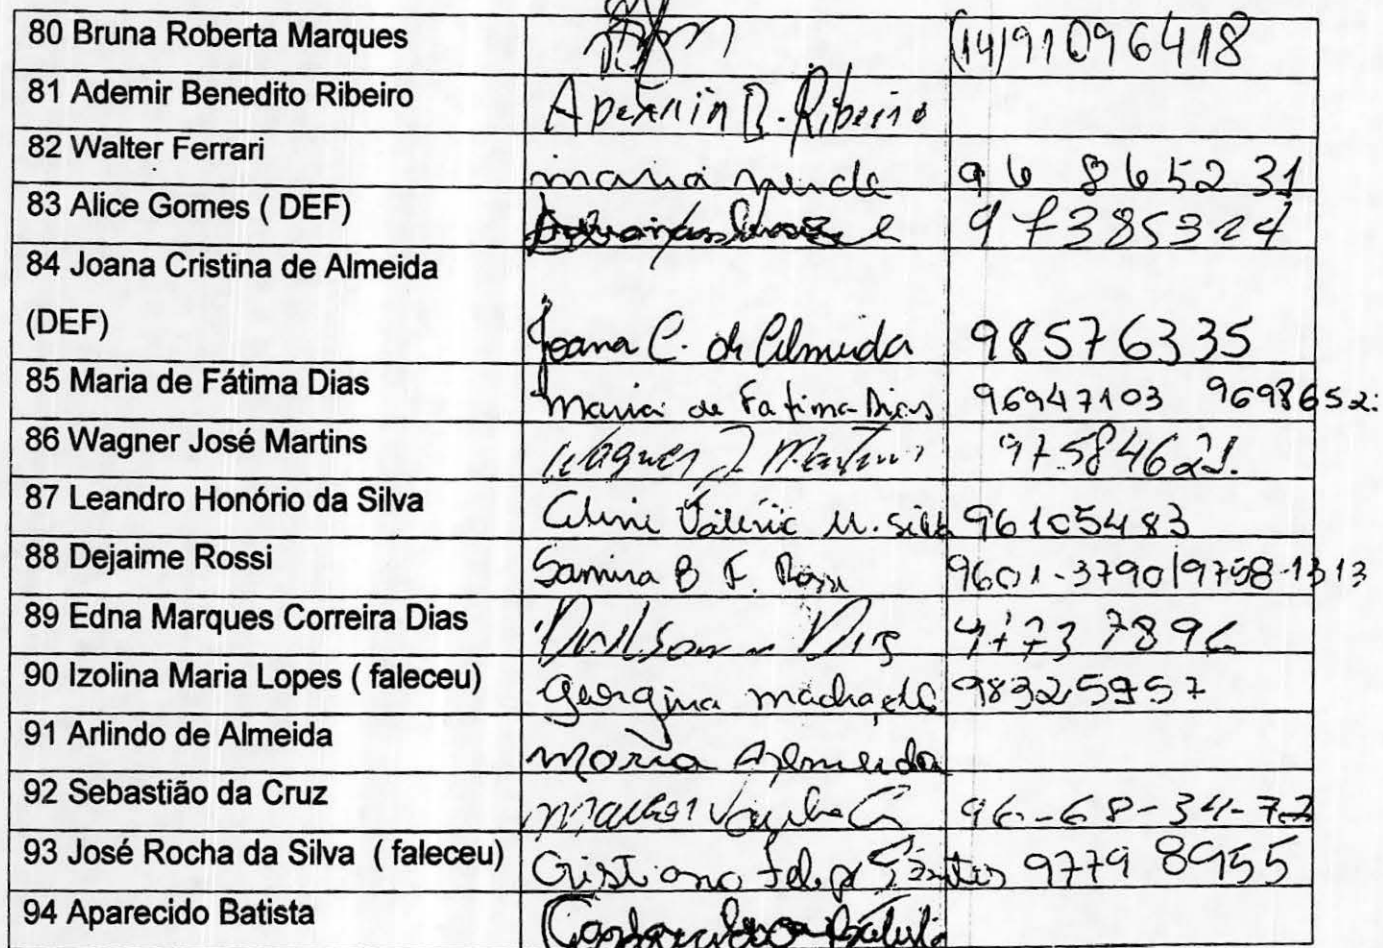 80 Bruna Roberta Marques (14)91096418
81 Ademir Benedito Ribeiro B. Ribeiro
82 Walter Ferrari maria 96 865231
83 Alice Gomes ( DEF) 97385324
84 Joana Cristina de Almeida
(DEF) Joana C. de Almeida 98576335
85 Maria de Fátima Dias maria de Fatima Dias 96947103 9698652
86 Wagner José Martins Wagner J Martins 97584621
87 Leandro Honório da Silva M. Silva 96105483
88 Dejaime Rossi Samira B F. Rossi 9601-3790/9758-1313
89 Edna Marques Correira Dias Dias
90 Izolina Maria Lopes ( faleceu) Georgina machado 98325957
91 Arlindo de Almeida Maria Almeida
92 Sebastião da Cruz 96-68-34-77
93 José Rocha da Silva ( faleceu) Cristiano Felipe Santos 9779 8955
94 Aparecido Batista Batista